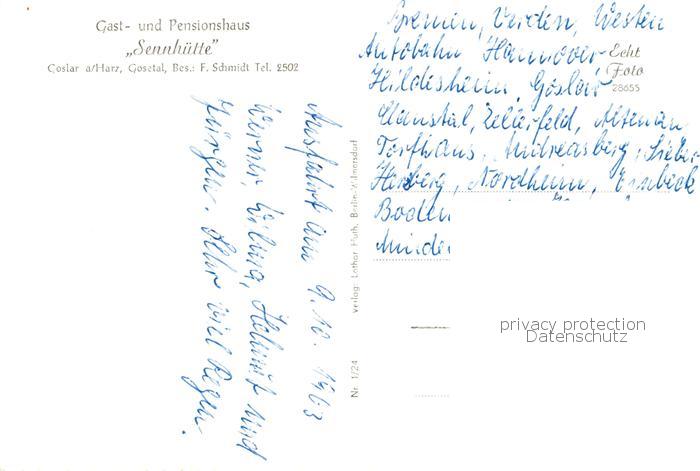 Gast- und Pensionshaus
„Sennhütte"
Goslar a/Harz, Gosetal, Bes.: F. Schmidt Tel. 2502
Ausfahrt am 9.10.1963
Werner, Helmut und
Jürgen. Sehr viel Regen.
Nr. 1/24
verlag: Lothar Huth, Berlin-Wilmersdorf
Bremen, Verden, Westen
Autobahn Hannover
Hildesheim, Goslar
Claustal, Zellerfeld, Altenau
Torfhaus, Andreasberg, Sieber
Herzberg, Nordheim, Einbeck
Boden
Minde
Echt
Foto
28655
privacy protection
Datenschutz